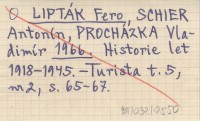 LIPTÁK Fero, SCHIER
Antonín, PROCHÁZKA Vla-
dimír 1966. Historie let
1918-1945. - Turista t. 5,
nr 2, s. 65-67.